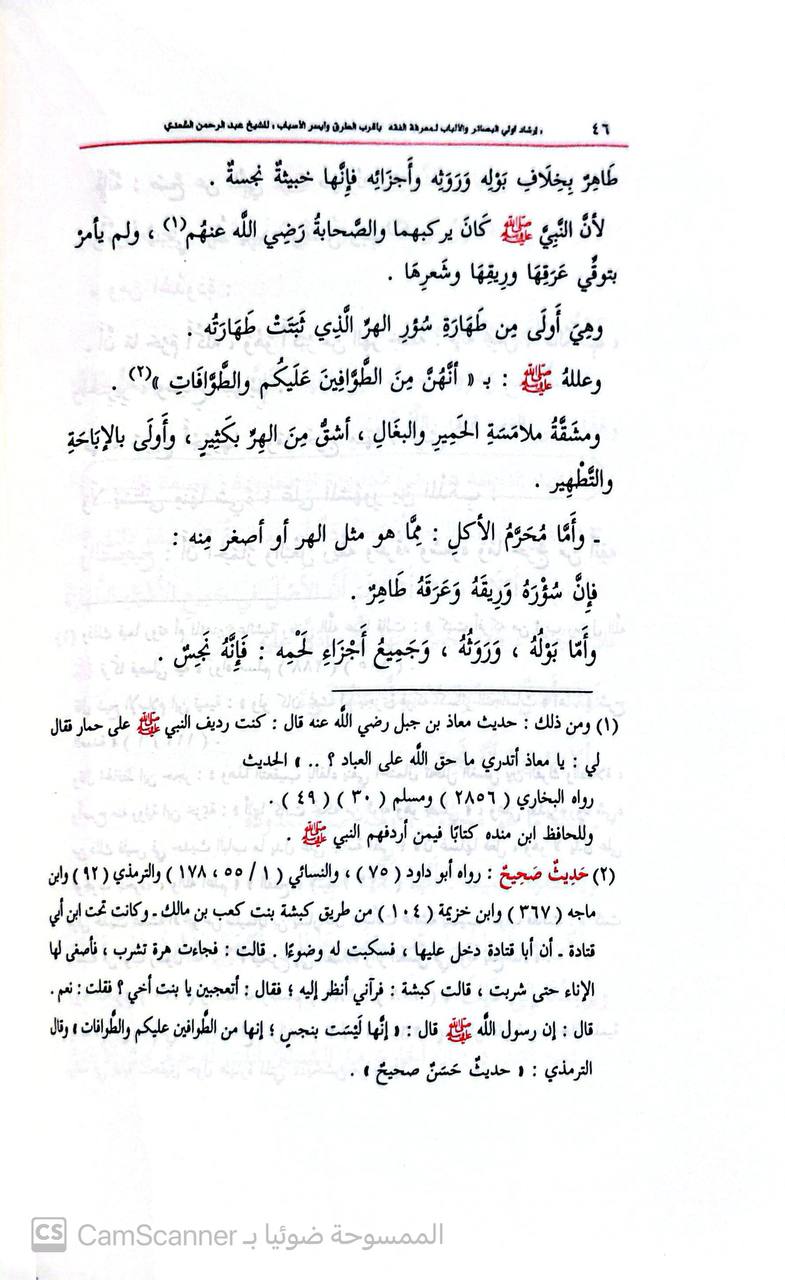 ٤٦ « إرشاد أولي البصائر والألباب لمعرفة الفقه بأقرب الطرق وأيسر الأسباب » للشيخ عبد الرحمن السعدي
طَاهِرٌ بِخِلَافِ بَوْلِه وَرَوَثِه وأَجزَائِه فإنَّها خبيثةٌ نجسةٌ .
لأنَّ النَّبِيَّ ﷺ كَانَ يركبهما والصَّحابةُ رَضِي اللَّه عنهُم(١) ، ولم يأمرْ
بتوقِّي عَرَقِهَا وريقِهَا وشَعرِهَا .
وهِيَ أَولَى مِن طَهَارَةِ سُؤرِ الهرِّ الَّذِي ثَبَتَتْ طَهَارَتُه .
وعللهُ ﷺ : بـ « أنَّهُنَّ مِنَ الطَّوَّافِينَ عَلَيكُم والطَّوَّافَاتِ »(٢) .
ومشَقَّةُ ملامَسَةِ الحَمِيرِ والبغَالِ ، أشقُّ مِنَ الهِرِّ بكَثِيرٍ ، وأَولَى بالإبَاحَةِ
والتَّطْهِير .
ـ وأَمَّا مُحَرَّمُ الأكلِ : مِمَّا هو مثل الهر أو أصغر مِنه :
فإنَّ سُؤْرَهُ وَرِيقَهُ وَعَرَقَهُ طَاهِرٌ .
وأَمَّا بَوْلُهُ ، وَرَوَثُهُ ، وَجَمِيعُ أَجْزَاءِ لَحْمِه : فَإنَّهُ نَجِسٌ .
(١) ومن ذلك : حديث معاذ بن جبل رضي اللَّه عنه قال : كنت رديف النبي ﷺ على حمار فقال
لي : يا معاذ أتدري ما حق اللَّه على العباد ؟ .. » الحديث
رواه البخاري ( ٢٨٥٦ ) ومسلم ( ٣٠ ) ( ٤٩ ) .
وللحافظ ابن منده كتابًا فيمن أردفهم النبي ﷺ .
(٢) حَدِيثٌ صَحِيحٌ : رواه أبو داود ( ٧٥ ) ، والنسائي ( ١ / ٥٥ ، ١٧٨ ) والترمذي ( ٩٢ ) وابن
ماجه ( ٣٦٧ ) وابن خزيمة ( ١٠٤ ) من طريق كبشة بنت كعب بن مالك ـ وكانت تحت ابن أبي
قتادة ـ أن أبا قتادة دخل عليها ، فسكبت له وضوءًا . قالت : فجاءت هرة تشرب ، فأصغى لها
الإناء حتى شربت ، قالت كبشة : فرآني أنظر إليه ؛ فقال : أتعجبين يا بنت أخي ؟ فقلت : نعم .
قال : إن رسول اللَّه ﷺ قال : « إنَّها لَيْسَت بنجسٍ ؛ إنها من الطَّوافين عليكم والطَّوافات » وقال
الترمذي : « حديثٌ حَسَنٌ صحيحٌ » .
CS CamScanner الممسوحة ضوئيا بـ